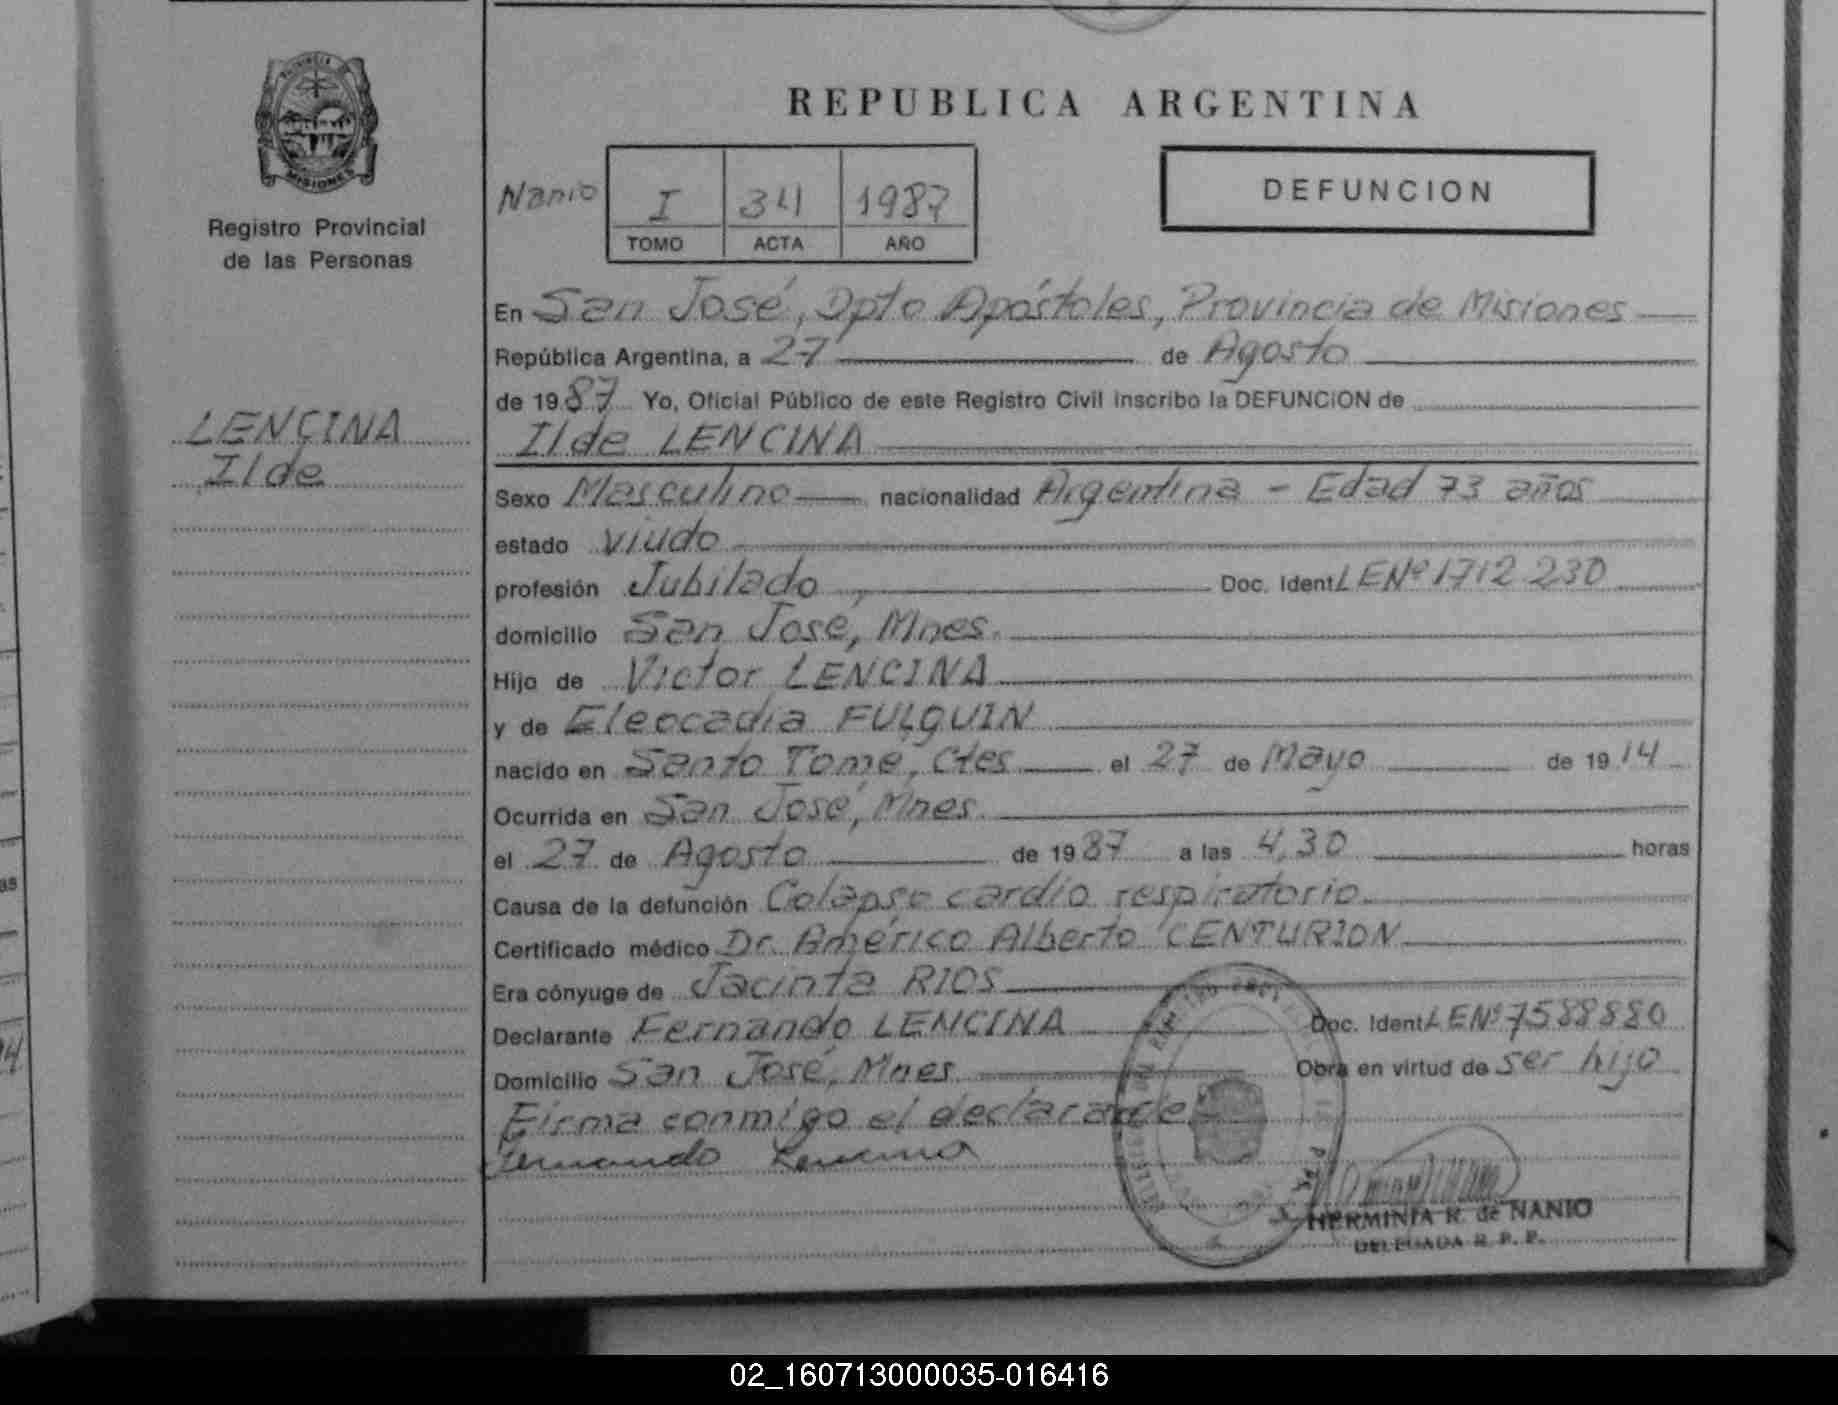 REPUBLICA ARGENTINA
PROVINCIA DE
MISIONES
Registro Provincial
de las Personas
Nanio
I 34 1987
TOMO ACTA AÑO
DEFUNCION
LENCINA
Ilde
En San José, Dpto Apóstoles, Provincia de Misiones
República Argentina, a 27 de Agosto
de 1987 Yo, Oficial Público de este Registro Civil inscribo la DEFUNCION de
Ilde LENCINA
Sexo Masculino nacionalidad Argentina - Edad 73 años
estado viudo
profesión Jubilado Doc. Ident. LENº 1712230
domicilio San José, Mnes.
Hijo de Victor LENCINA
y de Eleocadia FULQUIN
nacido en Santo Tomé, Ctes el 27 de Mayo de 1914
Ocurrida en San José, Mnes.
el 27 de Agosto de 1987 a las 4,30 horas
Causa de la defunción Colapso cardio respiratorio
Certificado médico Dr. Américo Alberto CENTURION
Era cónyuge de Jacinta RIOS
Declarante Fernando LENCINA Doc. Ident. LENº 7588880
Domicilio San José, Mnes Obra en virtud de ser hijo
Firma conmigo el declarante.
Fernando Lencina
HERMINIA R. de NANIO
DELEGADA R. P. P.
02_160713000035-016416